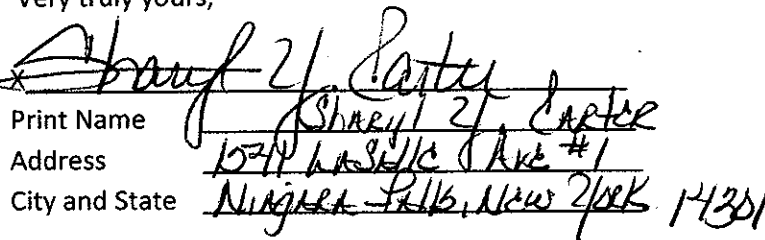 Very truly yours,
x Sharyl Y. Carter
Print Name Sharyl Y. Carter
Address LaSalle Ave #1
City and State Niagara Falls, New York 14301